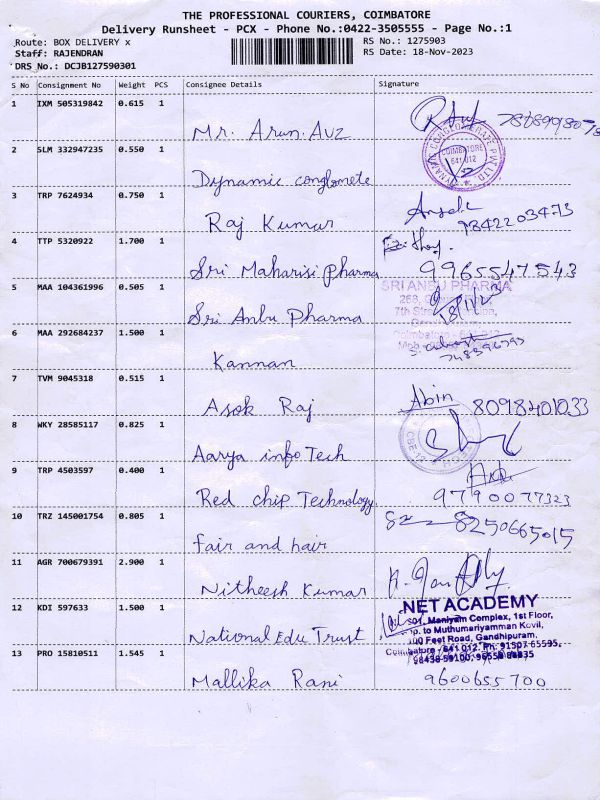 THE PROFESSIONAL COURIERS, COIMBATORE
Delivery Runsheet - PCX - Phone No.:0422-3505555 - Page No.:1
Route: BOX DELIVERY x
RS No.: 1275903
Staff: RAJENDRAN
RS Date: 18-Nov-2023
DRS No.: DCJB127590301
S No Consignment No Weight PCS Consignee Details Signature
1 IXM 505319842 0.615 1
Mr. Arun. Avz
2 SLM 332947235 0.550 1
COIMBATORE
641 012
Dynamic conglomete
3 TRP 7624934 0.750 1
Raj Kumar 98422 03473
4 TTP 5320922 1.700 1
Sri Maharisi Pharma 9965547543
5 MAA 104361996 0.505 1
SRI ANBU PHARMA
Sri Anbu Pharma
6 MAA 292684237 1.500 1
Kannan
7 TVM 9045318 0.515 1
Asok Raj Abin 8098401033
8 WKY 28585117 0.825 1
Aarya info Tech
9 TRP 4503597 0.400 1
Red chip Technology 9790077323
10 TRZ 145001754 0.805 1
8250665015
fair and hair
11 AGR 700679391 2.900 1
Nitheesh Kumar
12 KDI 597633 1.500 1
NET ACADEMY
Maniyam Complex, 1st Floor,
to Muthumariyamman Kovil,
Feet Road, Gandhipuram,
National Edu Trust
13 PRO 15810511 1.545 1
Coimbatore - 641 012. Ph: 91507 65595,
98438 59100,
Mallika Rani 9600655700